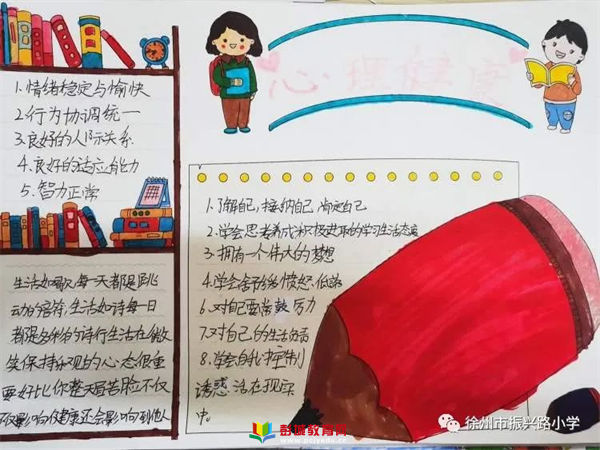 心理健康
1.情绪稳定与愉快
2.行为协调统一
3.良好的人际关系
4.良好的适应能力
5.智力正常
生活如歌,每一天都是跳
动的音符,生活如诗每一日
都是多彩的诗行生活在微
笑保持乐观的心态很重
要好比你整天愁苦脸不仅
仅影响健康还会影响到他人
1.了解自己,接纳自己,肯定自己
2.学会思考养成积极进取的学习生活态度
3.拥有一个伟大的梦想
4.学会舍弃愤怒、低落
6.对自己要常鼓厉力
7.对自己的生活负责
8.学会自我控制
诱惑活在现实
中.
彭城教育网
www.pcjyedu.cn
徐州市振兴路小学